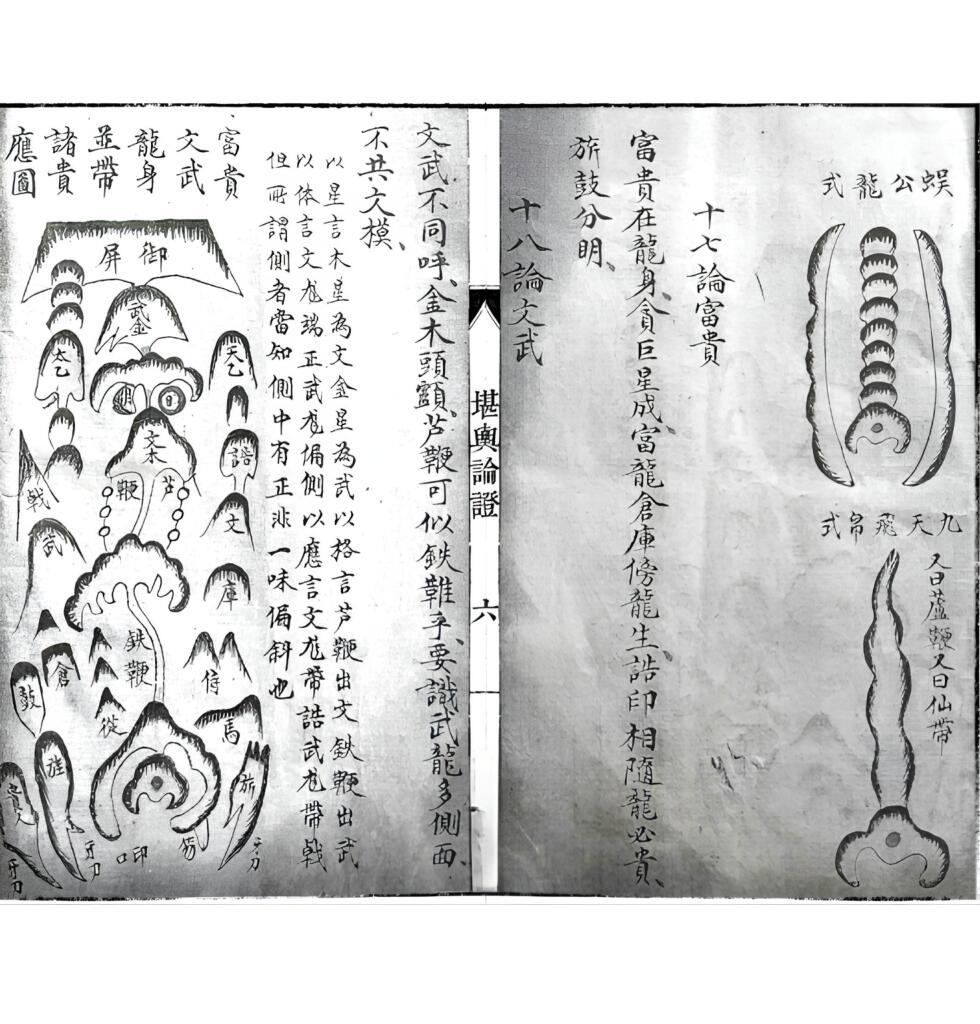 蜈公龍式
九天飛帛式
又曰蘆鞭又曰仙帶
十七論富貴
富貴在龍身、貪巨星成富龍、倉庫傍龍生、誥印相隨龍必貴、
旂鼓分明、
十八論文武
堪輿論證
六
文武不同呼、金木頭顱、芦鞭可似鉄鞭乎、要識武龍多側面、
不共文模、
以星言木星為文金星為武以格言芦鞭出文鉄鞭出武
以体言文龙端正武龙偏側以應言文龙帶誥武龙帶戟
但所謂側者當知側中有正非一味偏斜也
富貴
文武
龍身
並帶
諸貴
應圖
御屏
武金
太乙
天乙
文木
誥
芦鞭
戟
文
武
庫
鉄鞭
倉
侍
鼓
從
馬
旌
旂
笏
印
牙刀
牙刀
牙刀